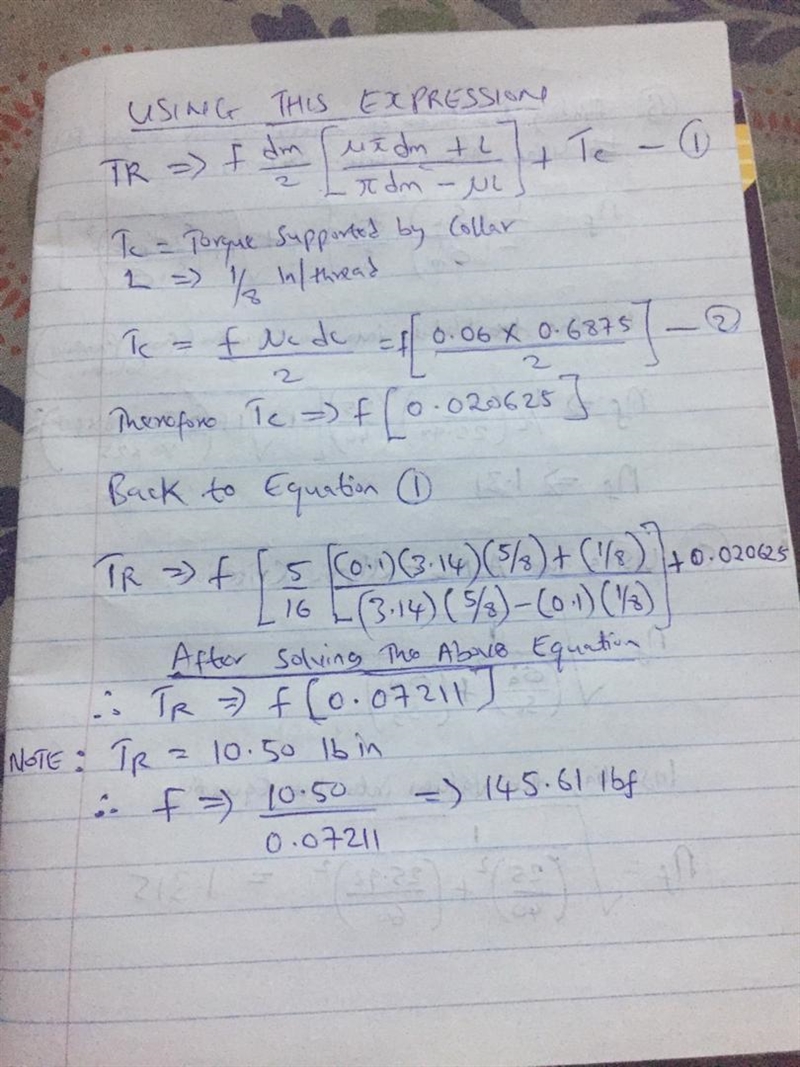 USING THIS EXPRESSION
TR => f dm/2 [μπdm + L / πdm - μL] + Tc - ①
Tc = Torque Supported by Collar
L => 1/8 In/thread
Tc = f μc dc / 2 = f[0.06 × 0.6875 / 2] - ②
Therefore Tc => f [0.020625]
Back to Equation ①
TR => f [5/16 [(0.1)(3.14)(5/8) + (1/8) / (3.14)(5/8) - (0.1)(1/8)] + 0.020625
After Solving The Above Equation
∴ TR => f [0.07211]
NOTE: TR = 10.50 lb in
∴ f => 10.50 / 0.07211 => 145.61 lbf